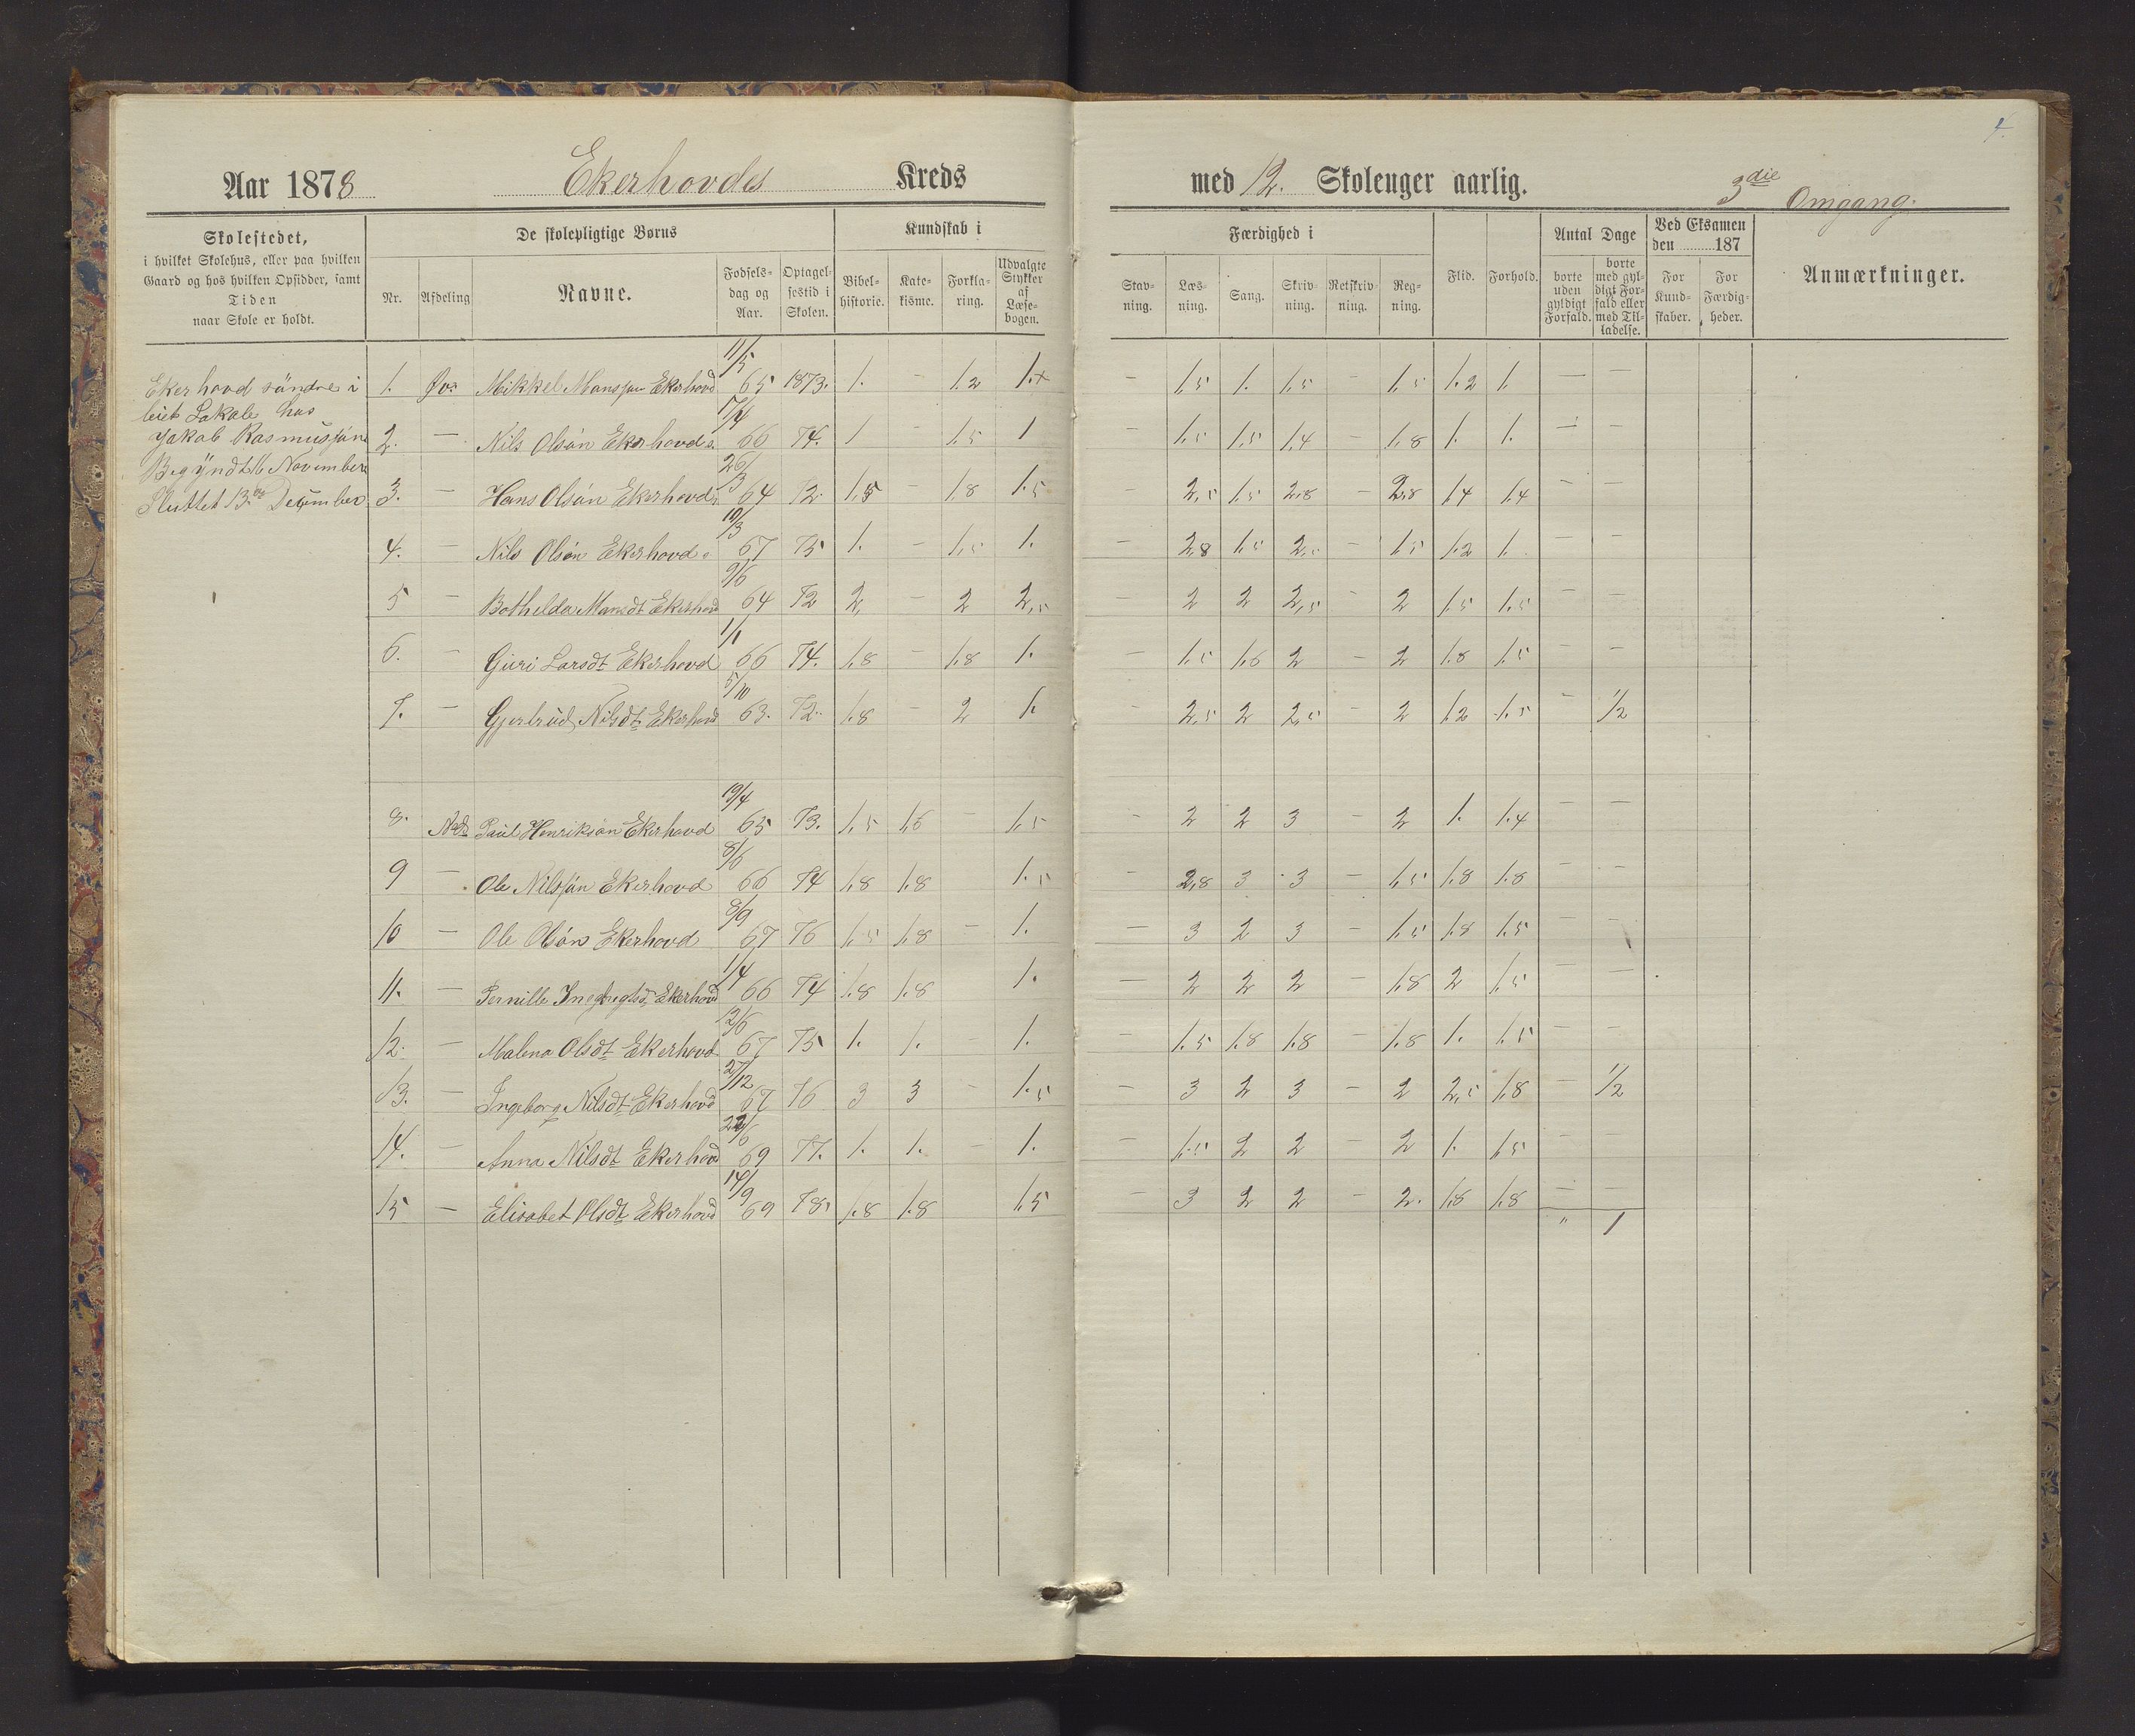 4
Aar 1878 Ekerhovdes Kreds med 12. Skoleuger aarlig. 3die Omgang.
Skolestedet,
i hvilket Skolehus, eller paa hvilken
Gaard og hos hvilken Opsidder, samt
Tiden
naar Skole er holdt.
De skolepligtige Børns
Nr. Afdeling Navne. Fødselsdag og Aar. Optagelsestid i Skolen.
Kundskab i
Bibelhistorie. Katekisme. Forklaring. Udvalgte Stykker af Læsebogen.
Færdighed i
Stavning. Læsning. Sang. Skrivning. Retskrivning. Regning.
Flid. Forhold.
Antal Dage
borte uden gyldigt Forfald. borte med gyldigt Forfald eller med Tilladelse.
Ved Eksamen den 187
For Kundskaber. For Færdigheder.
Anmærkninger.
Ekerhovd söndre i
leiet Lokale hos
Jakob Rasmussön
Begyndt 16 November
Sluttet 13de December
1. Øv. Mikkel Monssøn Ekerhovd 11/5 65 1873. 1. – 1.2 1.x – 1.5 1. 1.5 – 1.5 1.2 1. – –
2. – Nils Olsön Ekerhovd s. 17/4 66 74. 1 – 1.5 1 – 1.5 1.5 1.4 – 1.8 1. 1. – –
3. – Hans Olsön Ekerhovd 26/3 64 72. 1.5 – 1.8 1.5 – 2,5 1.5 2.8 – 2.8 1.4 1.4 – –
4. – Nils Olsön Ekerhovd 10/3 67 75 1. – 1.5 1. – 2.8 1.5 2,5 – 1.5 1.2 1. – –
5 – Bothilda Monsdt Ekerhovd 9/6 64 72 2, – 2 2,5 – 2 2 2,5 – 2 1.5 1.5 – –
6. – Guri Larsdt Ekerhovd 1/1 66 74. 1.8 – 1.8 1. – 1.5 1.6 2 – 2 1.8 1.5 – –
7. – Gjertrud Nilsdt Ekerhovd 5/10 63. 72. 1.8 – 2 1. – 2,5 2 2,5 – 2 1.2 1.5 – 1/2
8. Ned Paul Henriksön Ekerhovd 19/4 65 73. 1.5 1.5 – 1.5 – 2 2 3 – 2 1. 1.4 – –
9 – Ole Nilssön Ekerhovd 8/6 66 74 1.8 1.8 1.5 – 2,8 3 3 – 1.5 1.8 1.8 – –
10 – Ole Olsön Ekerhovd 8/9 67 76 1.5 1.8 – 1. – 3 2 3 – 1.5 1.8 1.5 – –
11. – Pernille Ekerhovd 1/4 66 74 1.8 1.8 1. – 2 2 2 – 1.8 2 1.5 – –
12. – Malena Olsdt Ekerhovd 12/6 67 75 1. 1. – 1. – 1.5 1.8 1.8 – 1.8 1. 1.5 – –
13. – Ingeborg Nilsdt Ekerhovd 27/12 67 76 3 3 – 1.5 – 3 2 3 – 2 2,5 1.8 – 1/2
14. – Anna Nilsdt Ekerhovd 22/6 69 77. 1. 1. – 1. – 1.5 2 2 – 2 1. 1.5 – –
15 – Elisabet Olsdt Ekerhovd 14/9 69 78, 1.8 1.8 1.5 – 3 2 2 – 2. 1.8 1.8 – –
" 1